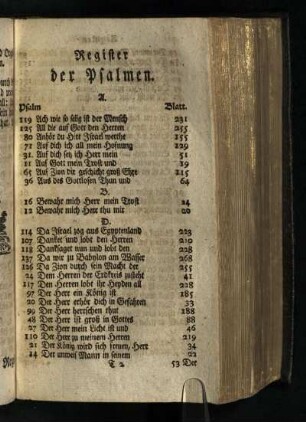 Register
der Psalmen.
A.
Psalm Blatt.
119 Ach wie so selig ist der Mensch 231
125 All die auf Gott den Herren 255
80 Anhör du Hirt Israel werthe 155
71 Auf dich ich all mein Hofnung 129
31 Auf dich setz ich Herr mein 51
11 Auf Gott mein Trost und 19
65 Auf Zion dir geschicht groß Ehr 115
36 Aus des Gottlosen Thun und 64
B.
16 Bewahr mich Herr mein Trost 24
12 Bewahr mich Herr thu mir 20
D.
114 Da Israel zog aus Egyptenland 223
107 Danket und lobt den Herren 210
118 Danksaget nun und lobt den 228
137 Da wir zu Babylon am Wasser 268
126 Da Zion durch sein Macht der 255
24 Dem Herren der Erdkreis zusteht 41
117 Den Herren lobt ihr Heyden all 228
97 Der Herr ein König ist 185
20 Der Herr erhör dich in Gefahren 33
99 Der Herr herrschen thut 188
48 Der Herr ist groß in Gottes 88
27 Der Herr mein Licht ist und 46
110 Der Herr zu meinem Herren 219
21 Der König wird sich freuen, Herr 34
14 Der unweis Mann in seinem 22
T 2 53 Der